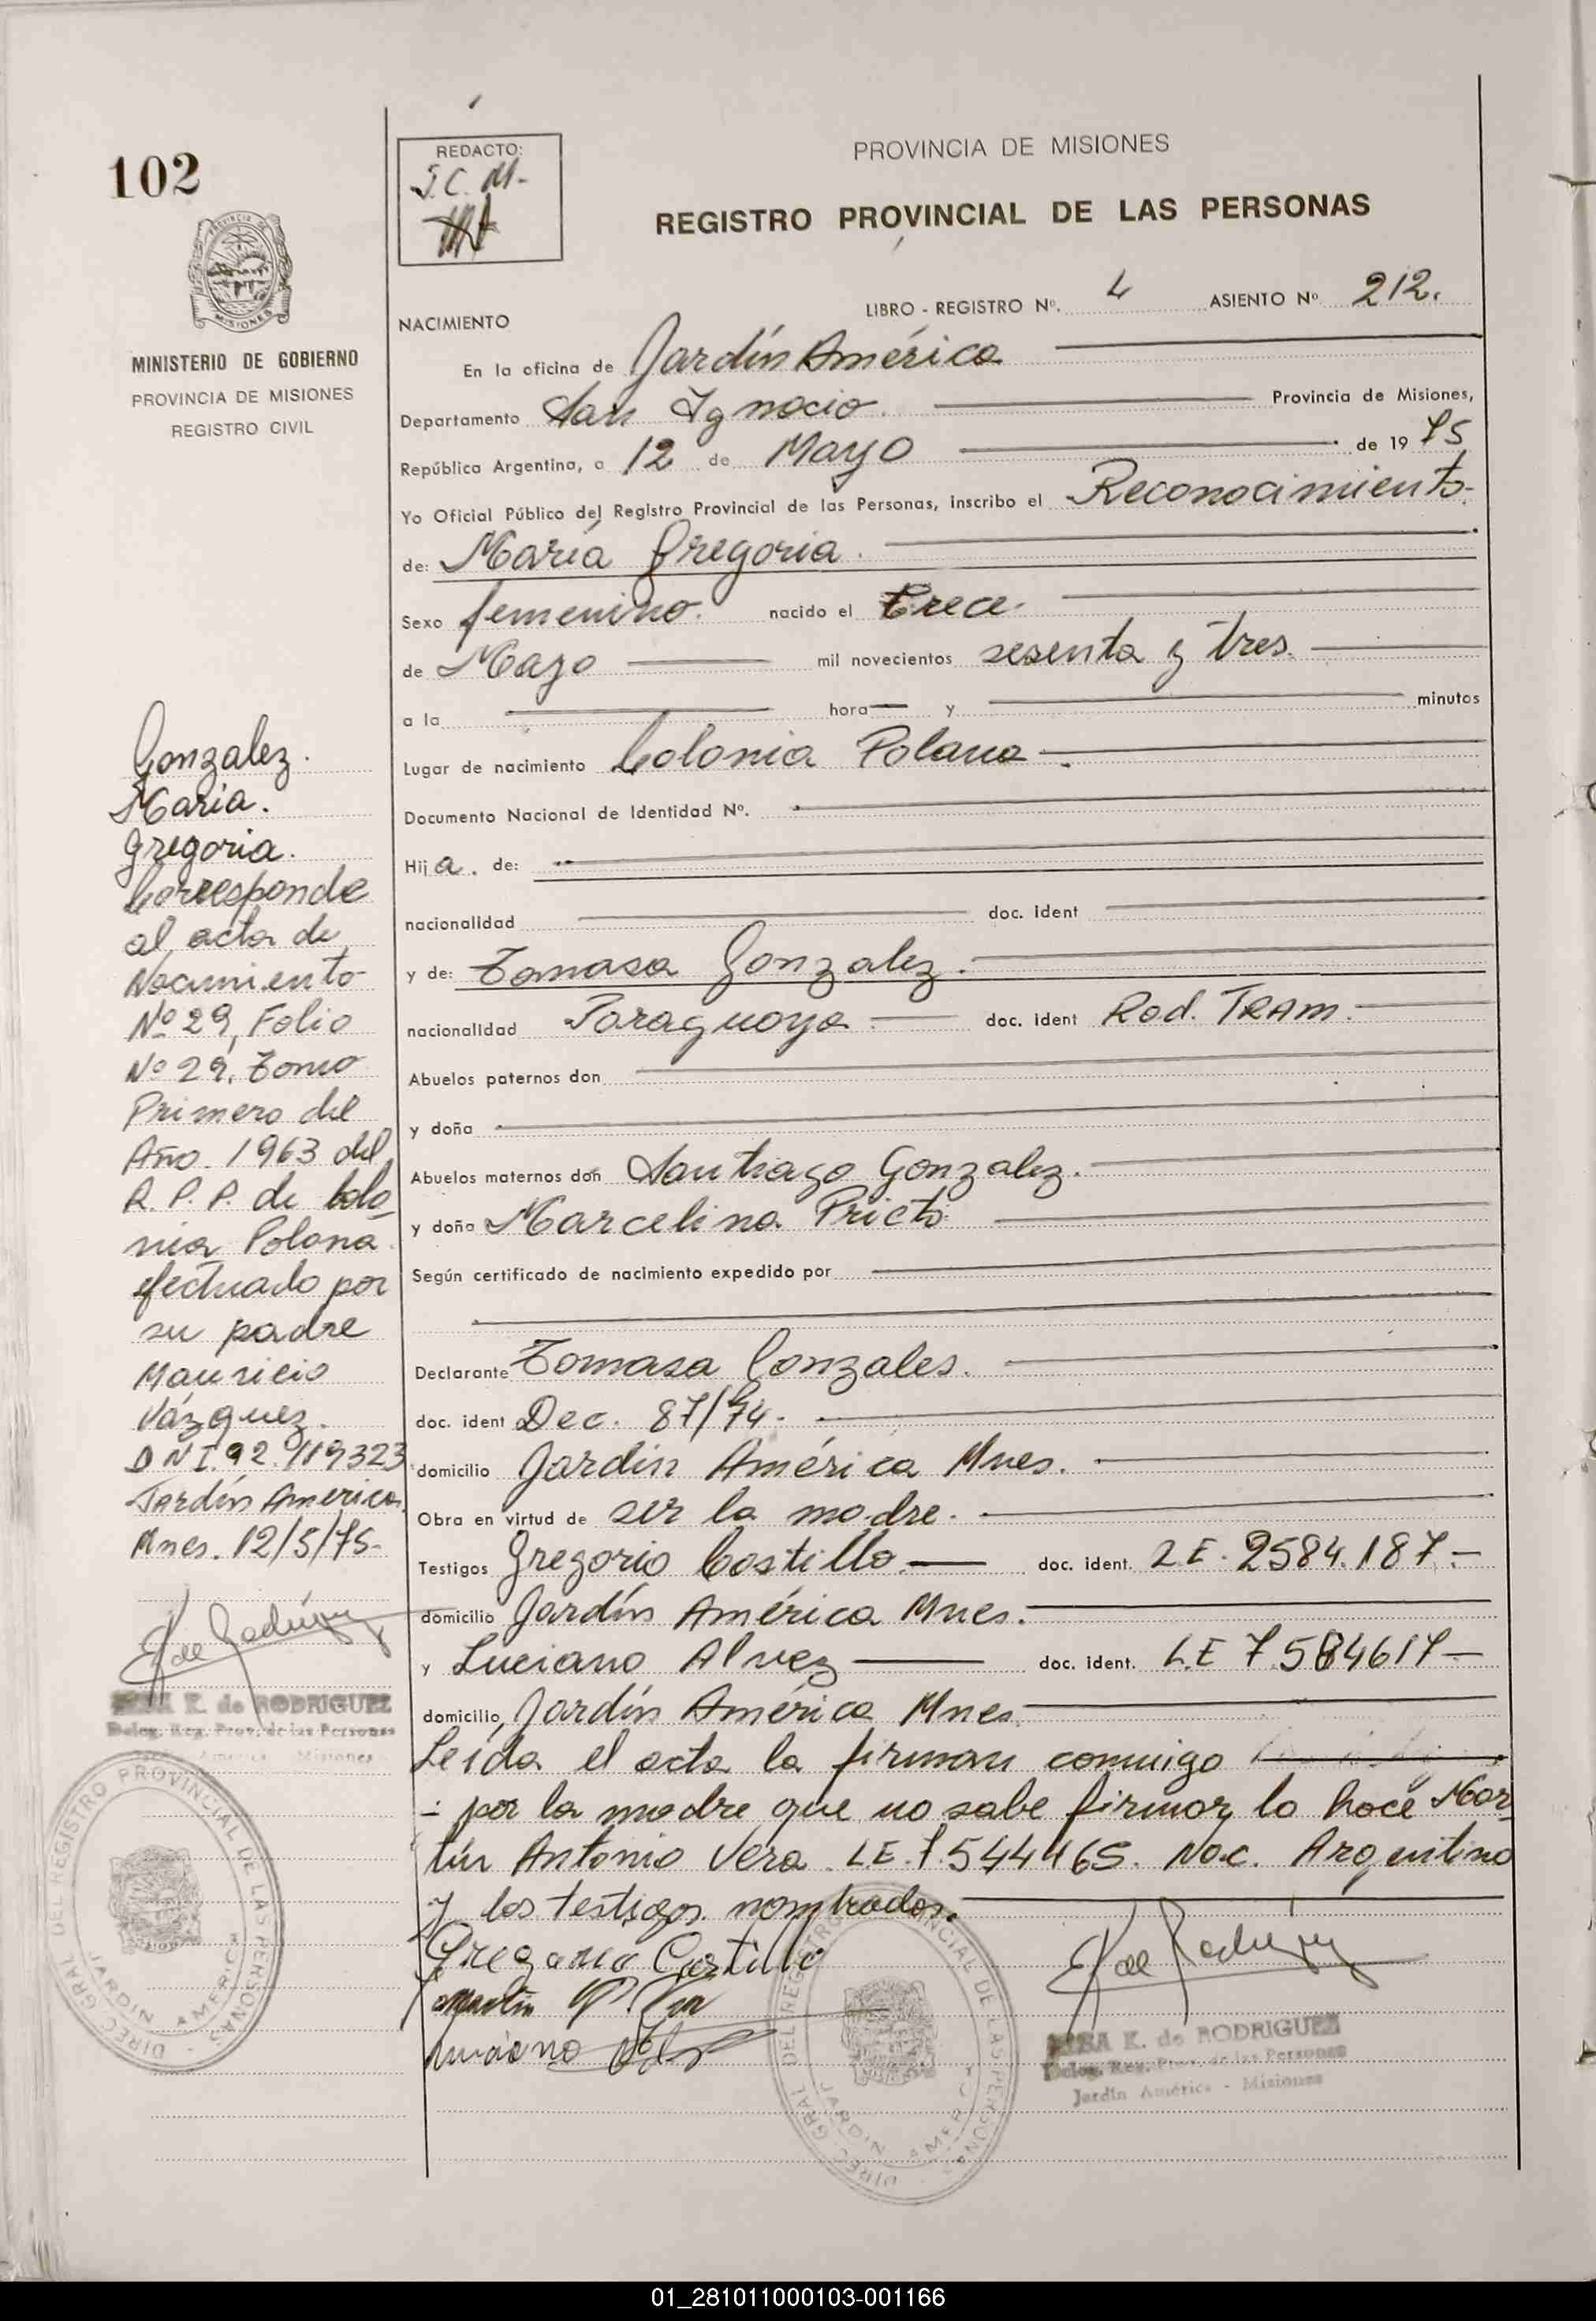 102
MINISTERIO DE GOBIERNO
PROVINCIA DE MISIONES
REGISTRO CIVIL
REDACTO:
J.C. M.-
PROVINCIA DE MISIONES
REGISTRO PROVINCIAL DE LAS PERSONAS
LIBRO - REGISTRO Nº. 4 ASIENTO Nº 212.
NACIMIENTO
En la oficina de Jardín América
Departamento San Ignacio. Provincia de Misiones,
República Argentina, a 12 de Mayo de 19 75
Yo Oficial Público del Registro Provincial de las Personas, inscribo el Reconocimiento.
de: María Gregoria.
Sexo femenino. nacido el Trece.
de Mayo mil novecientos sesenta y tres.
a la hora y minutos
Lugar de nacimiento Colonia Polana.
Documento Nacional de Identidad Nº.
Hij a. de:
nacionalidad doc. ident
y de: Tomasa Gonzalez.
nacionalidad Paraguaya doc. ident Rad. TRAM.
Abuelos paternos don
y doña
Abuelos maternos don Santiago Gonzalez.
y doña Marcelina Prieto
Según certificado de nacimiento expedido por
Declarante Tomasa Gonzales.
doc. ident Dec. 87/74.
domicilio Jardín América Mnes.
Obra en virtud de ser la madre.
Testigos Gregorio Costillo doc. ident. L.E. 2584.187.-
domicilio Jardín América Mnes.
y Luciano Alvez doc. ident. L.E 7.584617-
domicilio, Jardín América Mnes.
Leída el acta la firman conmigo
- por la madre que no sabe firmar lo hace Mar-
tín Antonio Vera LE. 7544465. Nac. Argentino
y los testigos nombrados.
Gregorio Castillo
E K de Rodríguez
ELSA K. de RODRIGUEZ
Deleg. Reg. Prov. de las Personas
Jardín América - Misiones
DIREC. GRAL. DEL REGISTRO PROVINCIAL DE LAS PERSONAS
JARDIN AMERICA
Gonzalez.
María.
Gregoria.
Corresponde
al acta de
Nacimiento
Nº 29, Folio
Nº 29, Tomo
Primero del
Año. 1963 del
R. P. P. de Colo-
nia Polana.
efectuado por
su padre
Mauricio
Vázquez.
D N I. 92.119323
Jardín America
Mnes. 12/5/75-
E K de Rodríguez
ELSA K. de RODRIGUEZ
Deleg. Reg. Prov. de las Personas
América - Misiones
DIREC. GRAL. DEL REGISTRO PROVINCIAL DE LAS PERSONAS
JARDIN AMERICA
01_281011000103-001166